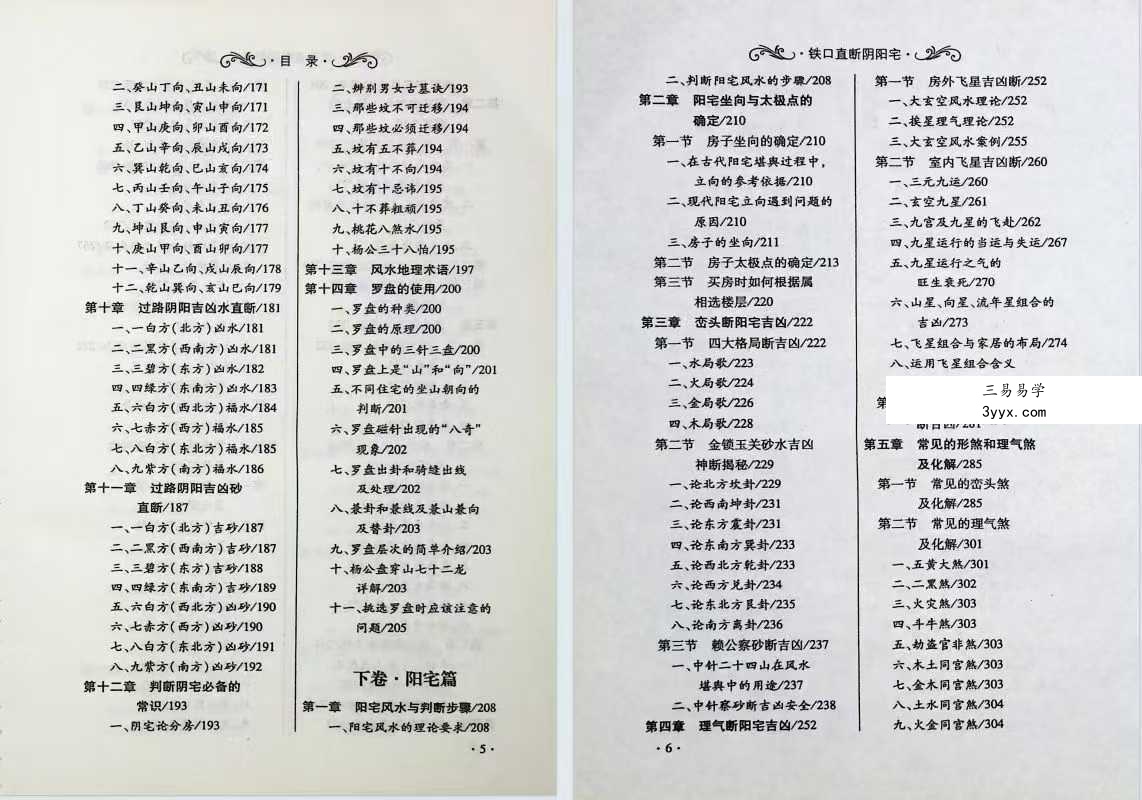 ·目 录·
二、癸山丁向、丑山未向/171
三、艮山坤向、寅山申向/171
四、甲山庚向、卯山酉向/172
五、乙山辛向、辰山戌向/173
六、巽山乾向、巳山亥向/174
七、丙山壬向、午山子向/175
八、丁山癸向、未山丑向/176
九、坤山艮向、申山寅向/177
十、庚山甲向、酉山卯向/177
十一、辛山乙向、戌山辰向/178
十二、乾山巽向、亥山巳向/179
第十章 过路阴阳吉凶水直断/181
一、一白方(北方)凶水/181
二、二黑方(西南方)凶水/181
三、三碧方(东方)凶水/182
四、四绿方(东南方)凶水/183
五、六白方(西北方)福水/184
六、七赤方(西方)福水/185
七、八白方(东北方)福水/185
八、九紫方(南方)福水/186
第十一章 过路阴阳吉凶砂
直断/187
一、一白方(北方)吉砂/187
二、二黑方(西南方)吉砂/187
三、三碧方(东方)吉砂/188
四、四绿方(东南方)吉砂/189
五、六白方(西北方)凶砂/190
六、七赤方(西方)凶砂/190
七、八白方(东北方)凶砂/191
八、九紫方(南方)凶砂/192
第十二章 判断阴宅必备的
常识/193
一、阴宅论分房/193
二、辨别男女古墓诀/193
三、那些坟不可迁移/194
四、那些坟必须迁移/194
五、坟有五不葬/194
六、坟有十不向/194
七、坟有十忌讳/195
八、十不葬粗顽/195
九、桃花八煞水/195
十、杨公三十八怕/195
第十三章 风水地理术语/197
第十四章 罗盘的使用/200
一、罗盘的种类/200
二、罗盘的原理/200
三、罗盘中的三针三盘/200
四、罗盘上是“山”和“向”/201
五、不同住宅的坐山朝向的
判断/201
六、罗盘磁针出现的“八奇”
现象/202
七、罗盘出卦和骑缝出线
及处理/202
八、兼卦和兼线及兼山兼向
及替卦/203
九、罗盘层次的简单介绍/203
十、杨公盘穿山七十二龙
详解/203
十一、挑选罗盘时应该注意的
问题/205
下卷·阳宅篇
第一章 阳宅风水与判断步骤/208
一、阳宅风水的理论要求/208
·5·
·铁口直断阴阳宅·
二、判断阳宅风水的步骤/208
第二章 阳宅坐向与太极点的
确定/210
第一节 房子坐向的确定/210
一、在古代阳宅堪舆过程中，
立向的参考依据/210
二、现代阳宅立向遇到问题的
原因/210
三、房子的坐向/211
第二节 房子太极点的确定/213
第三节 买房时如何根据属
相选楼层/220
第三章 峦头断阳宅吉凶/222
第一节 四大格局断吉凶/222
一、水局歌/223
二、火局歌/224
三、金局歌/226
四、木局歌/228
第二节 金锁玉关砂水吉凶
神断揭秘/229
一、论北方坎卦/229
二、论西南坤卦/231
三、论东方震卦/231
四、论东南方巽卦/233
五、论西北方乾卦/233
六、论西方兑卦/234
七、论东北方艮卦/235
八、论南方离卦/236
第三节 赖公察砂断吉凶/237
一、中针二十四山在风水
堪舆中的用途/237
二、中针察砂断吉凶安全/238
第四章 理气断阳宅吉凶/252
第一节 房外飞星吉凶断/252
一、大玄空风水理论/252
二、挨星理气理论/252
三、大玄空风水案例/255
第二节 室内飞星吉凶断/260
一、三元九运/260
二、玄空九星/261
三、九宫及九星的飞赴/262
四、九星运行的当运与失运/267
五、九星运行之气的
旺生衰死/270
六、山星、向星、流年星组合的
吉凶/273
七、飞星组合与家居的布局/274
八、运用飞星组合含义
三易易学
3yyx.com
第五章 常见的形煞和理气煞
及化解/285
第一节 常见的峦头煞
及化解/285
第二节 常见的理气煞
及化解/301
一、五黄大煞/301
二、二黑煞/302
三、火灾煞/303
四、斗牛煞/303
五、劫盗官非煞/303
六、木土同宫煞/303
七、金木同宫煞/303
八、土水同宫煞/304
九、火金同宫煞/304
·6·